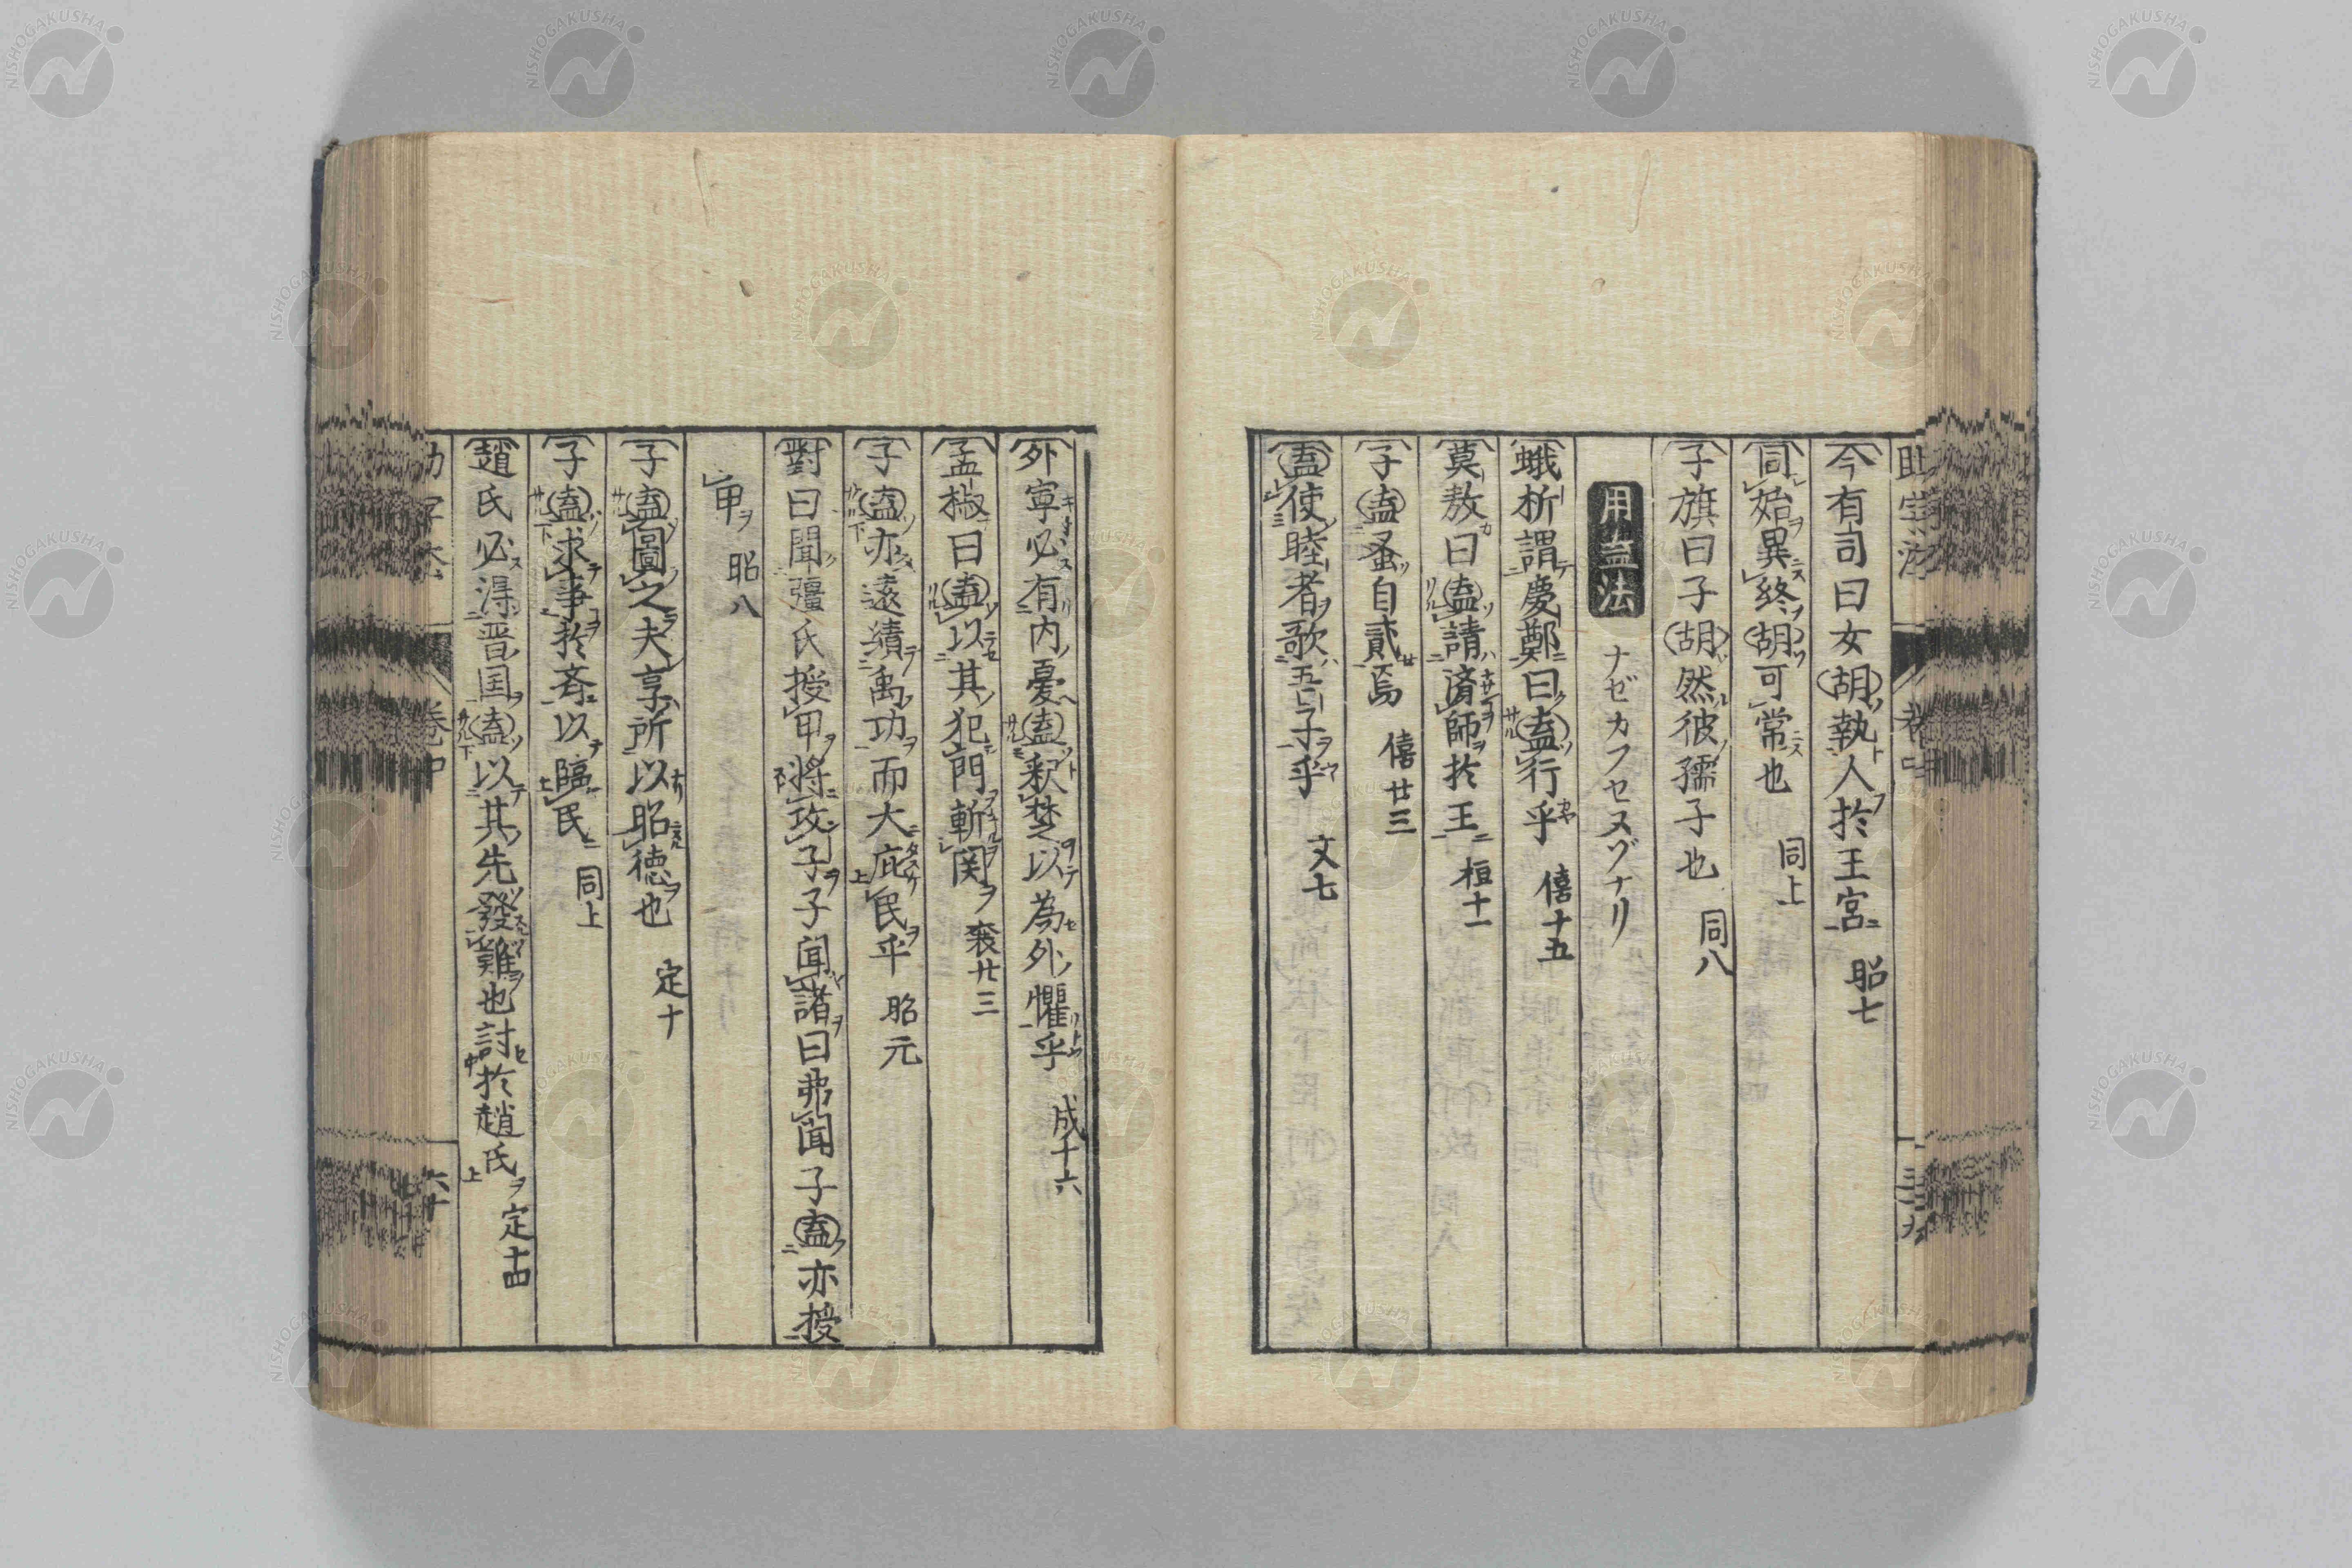 今有司曰女胡執人於王宮 昭七
同始異終胡可常也 同上
子旗曰子胡然彼孺子也 同八
用盍法 ナゼカフセヌゾナリ
蛾析謂慶鄭曰盍行乎 僖十五
莫敖曰盍請済師於王 桓十一
子盍蚤自貳焉 僖廿三
盍使睦者歌吾子乎 文七
外寧必有内憂盍釈楚以為外懼乎 成十六
孟椒曰盍以其犯門斬関 襄廿三
子盍亦遠績禹功而大庇民乎 昭元
對曰聞彊氏授甲将攻子子聞諸曰弗聞子盍亦授
甲 昭八
子盍圖之夫享所以昭徳也 定十
子盍求事於斉以臨民 同上
趙氏必得晋国盍以其先發難也討於趙氏 定十四
NISHOGAKUSHA